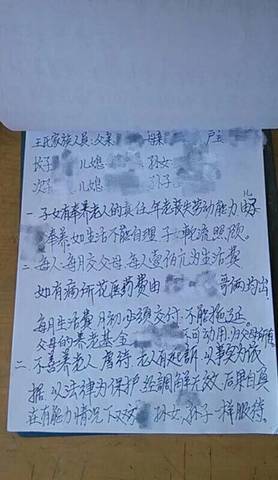 王氏家族人员:父亲 母亲 户主
长子 儿媳 孙女
次子 儿媳 孙子
一 子女有奉养老人的责任年老丧失劳动能力由儿子
奉养.如生活不能自理 子女轮流照顾.
二 每人每月交父母.每人壹佰元为生活费
如有病所花医药费由 哥俩均出
每月生活费月初必须交付.不能拖延.
父母的养老基金 不可动用.为父母所有
二 不善养老人,虐待,老人有起诉,以事实为依
据.以法律为保护经调解无效.后果自负
在有能力情况下对 孙女.孙子一样服待.